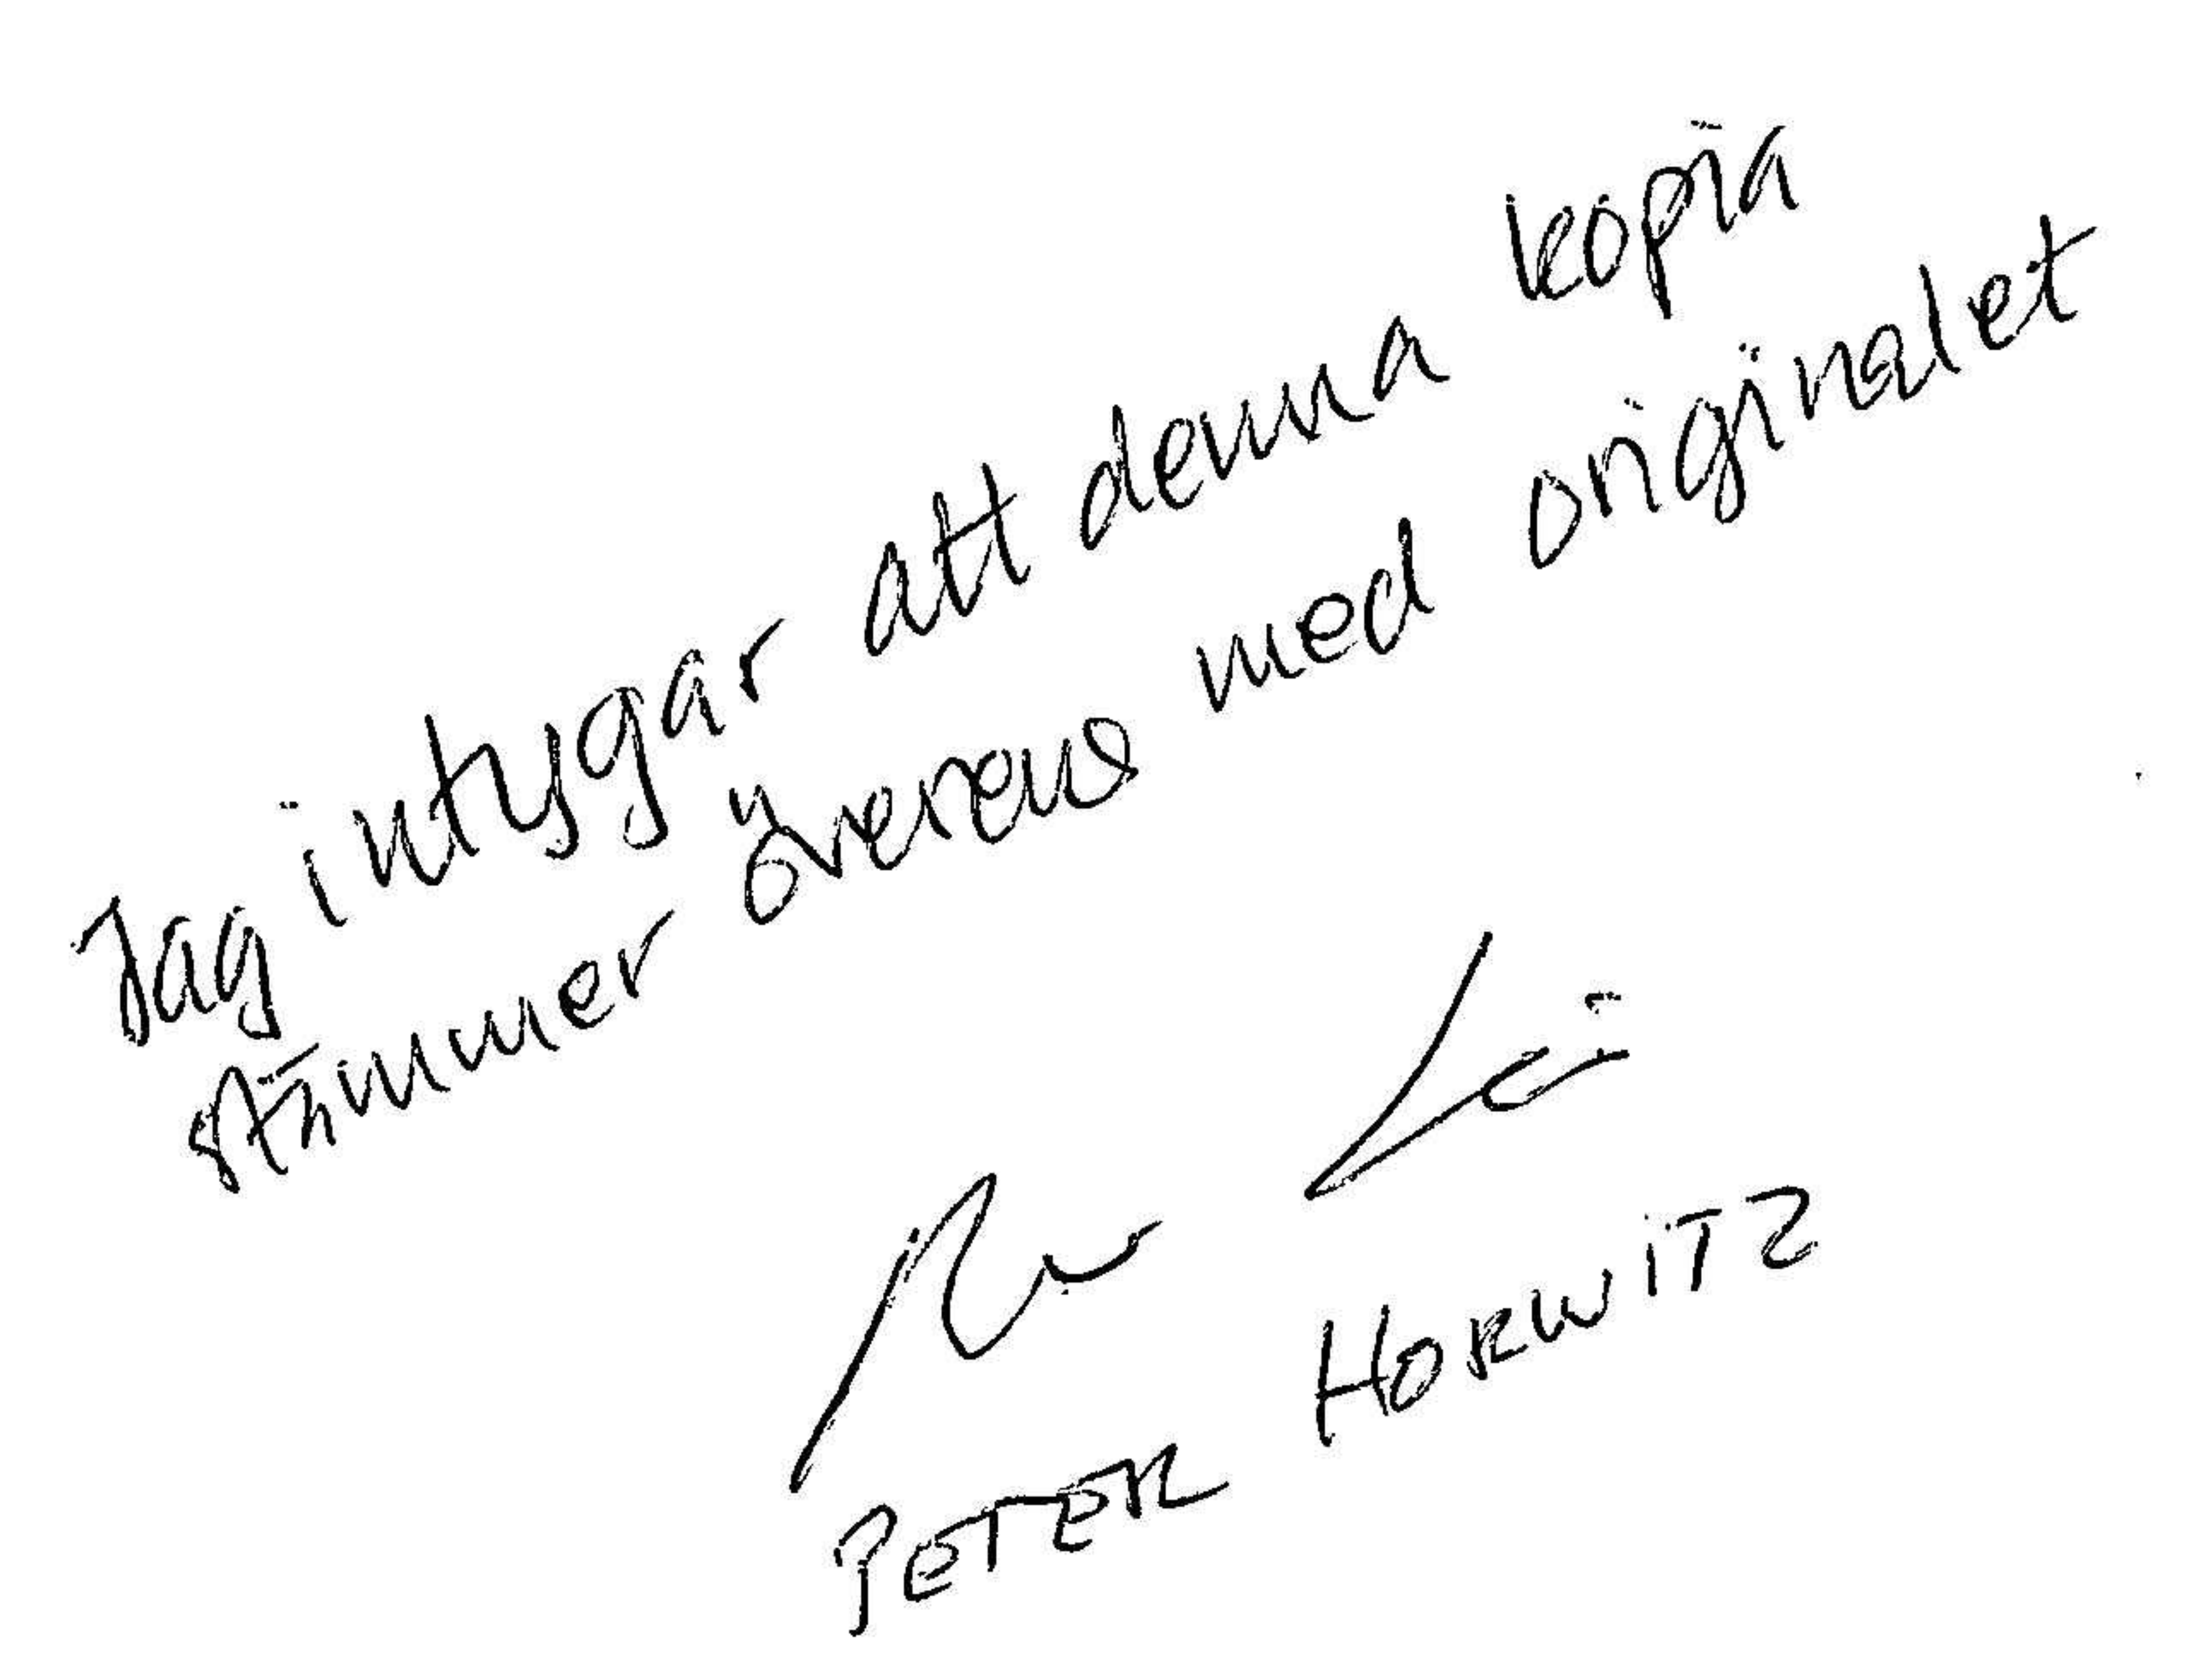 Jag intygar att denna kopia
stämmer överens med originalet
PETER HORWITZ